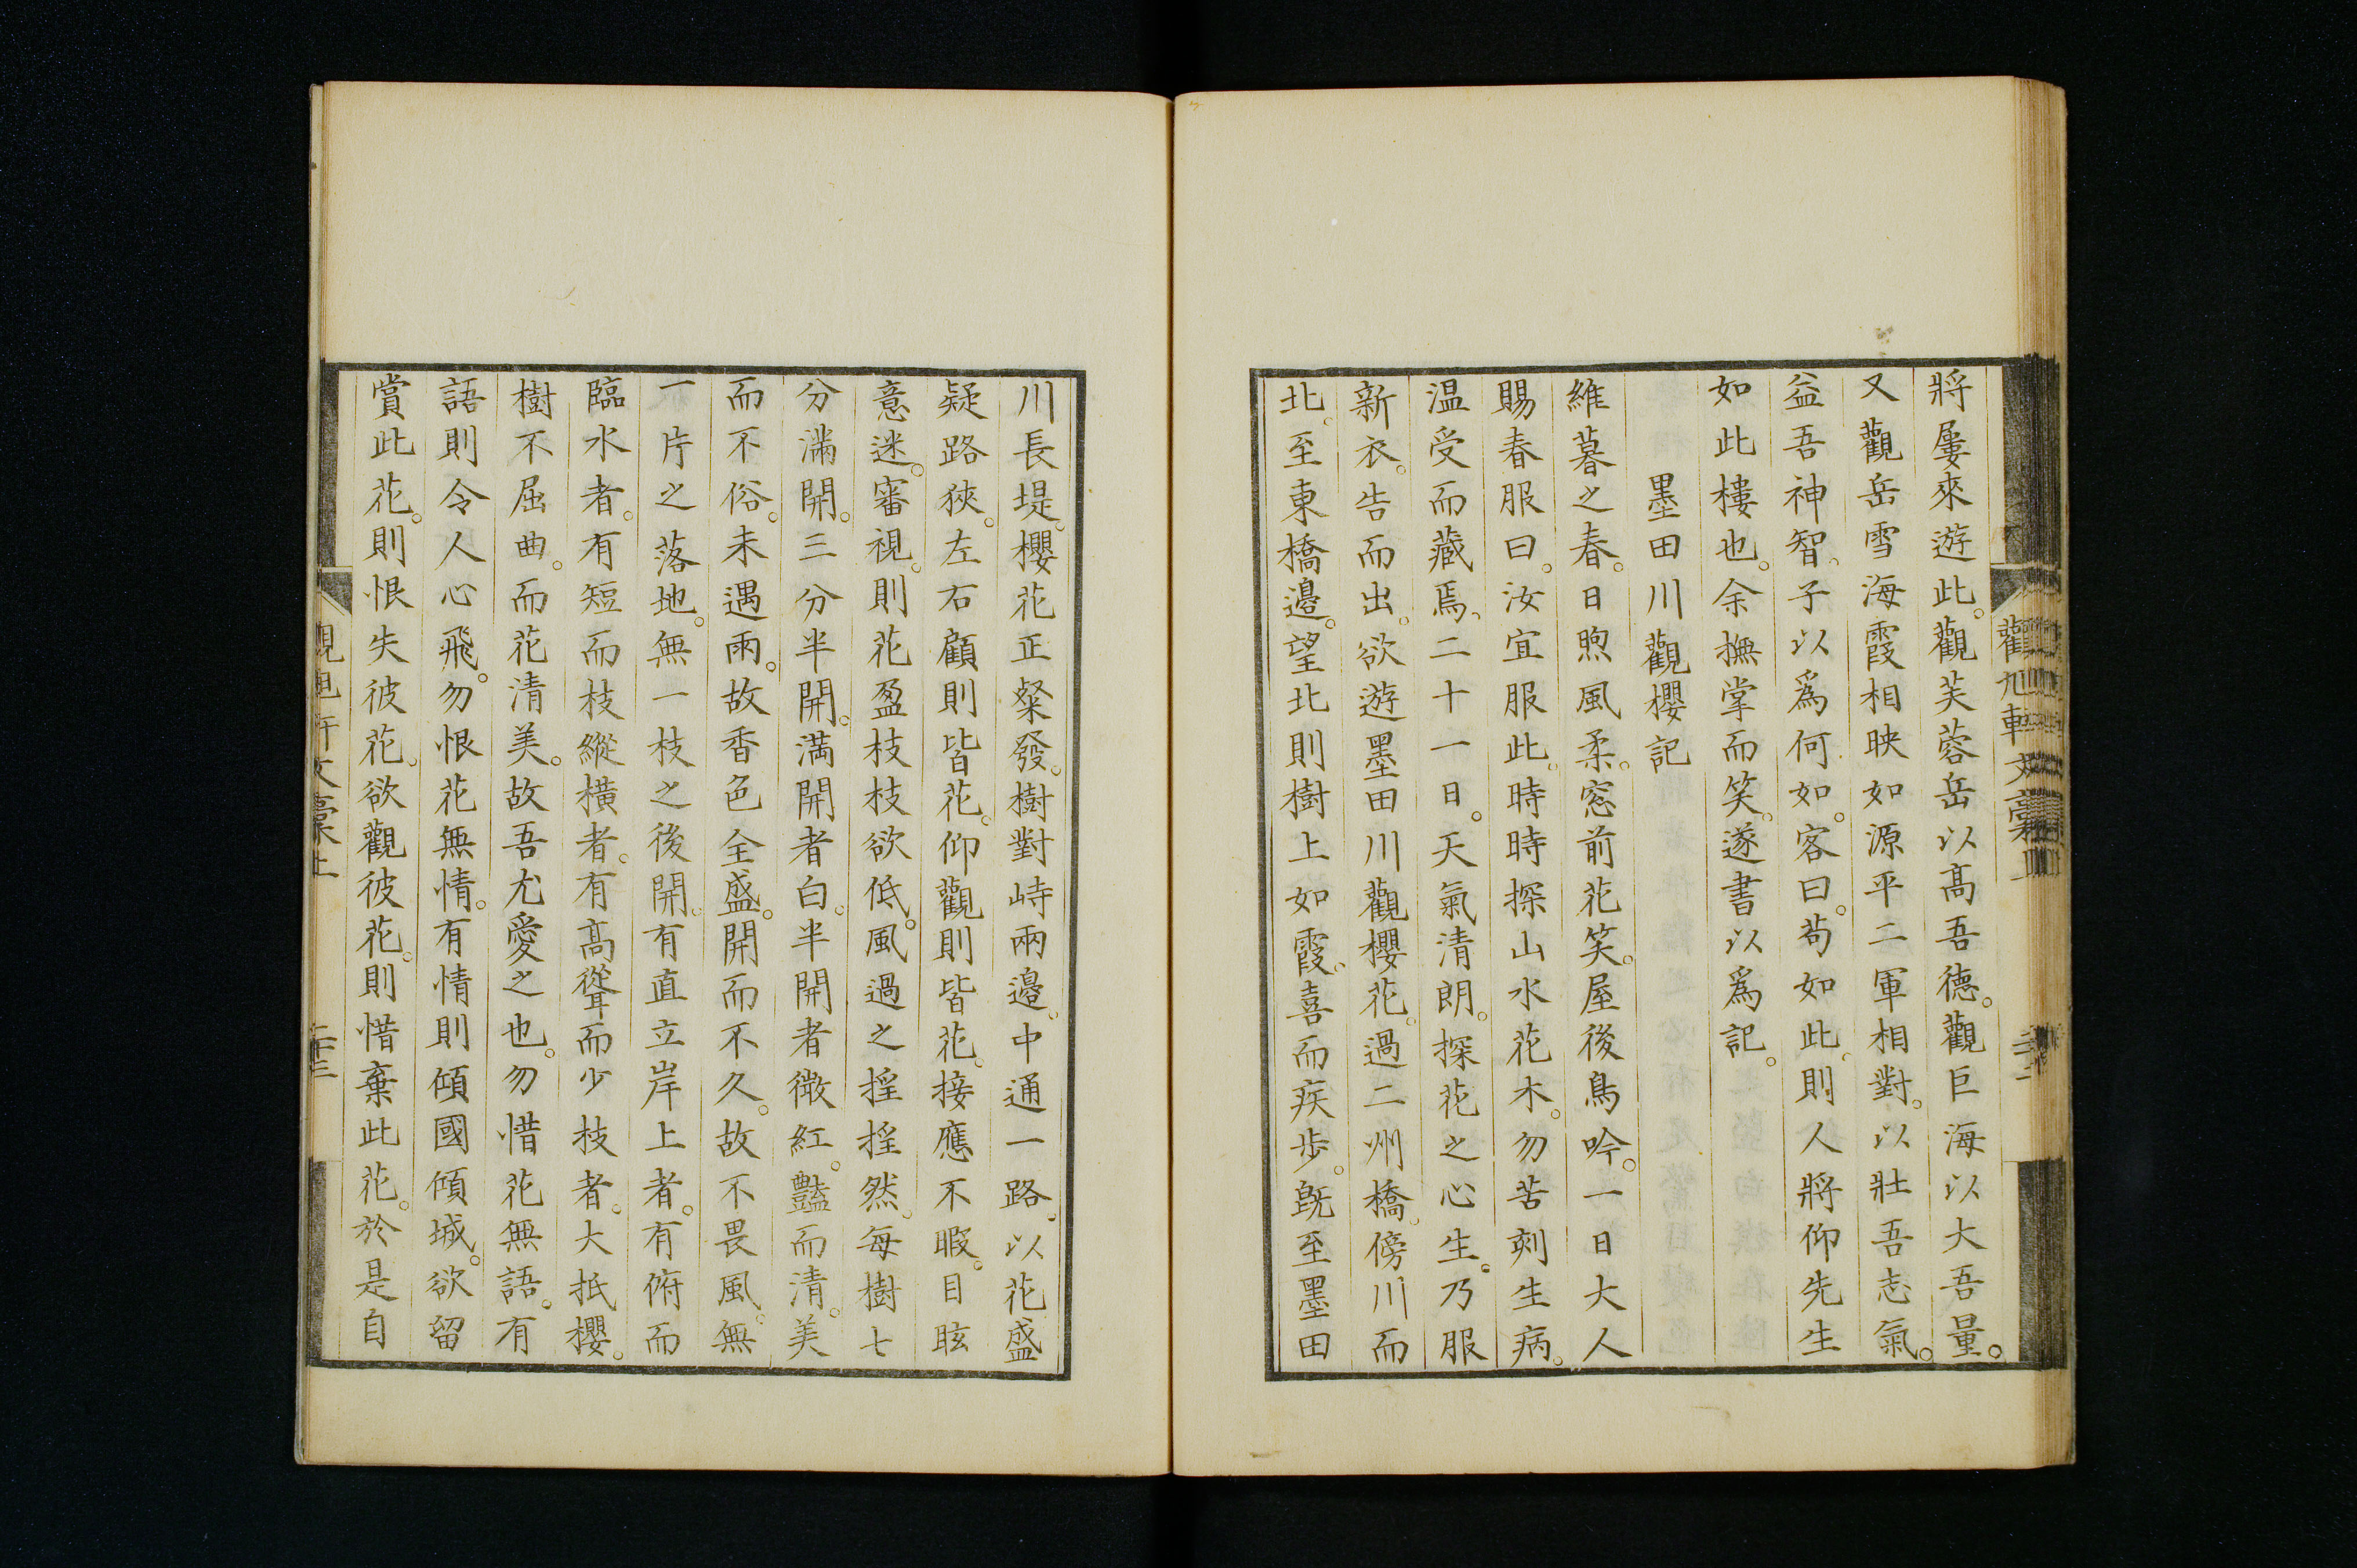 觀旭軒文稾上
二十二
將屢來遊此。觀芙蓉岳以高吾德。觀巨海以大吾量。
又觀岳雪海霞相映如源平二軍相對。以壯吾志氣。
益吾神智、子以爲何如。客曰。苟如此、則人將仰先生
如此樓也。余撫掌而笑。遂書以爲記。
墨田川觀櫻記
維暮之春。日煦風柔。窓前花笑。屋後鳥吟。一日大人
賜春服曰。汝宜服此。時時探山水花木。勿苦刻生病。
温受而藏焉、二十一日。天氣清朗。探花之心生。乃服
新衣。告而出。欲遊墨田川觀櫻花。過二州橋。傍川而
北。至東橋邊。望北則樹上如霞。喜而疾步。既至墨田
川長堤。櫻花正粲發。樹對峙兩邊。中通一路。以花盛
疑路狹。左右顧則皆花。仰觀則皆花。接應不暇。目眩
意迷。審視。則花盈枝枝欲低。風過之搖搖然。每樹七
分滿開。三分半開。満開者白。半開者微紅。豔而清。美
而不俗。未遇雨。故香色全盛。開而不久。故不畏風。無
一片之落地。無一枝之後開。有直立岸上者。有俯而
臨水者。有短而枝縱橫者。有高聳而少枝者。大抵櫻。
樹不屈曲。而花清美。故吾尤愛之也。勿惜花無語。有
語則令人心飛。勿恨花無情。有情則傾國傾城。欲留
賞此花。則恨失彼花。欲觀彼花。則惜棄此花。於是自
觀旭軒文稾上
二十三